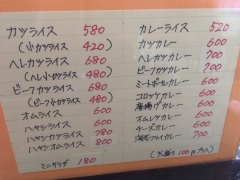 カツライス 580
(小カツライス 420)
ヘレカツライス 680
(ヘレ小カツライス 480)
ビーフカツライス 680
(ビーフ小カツライス 480)
オムライス 600
ハヤシライス 600
ハヤシカツライス 780
ハヤシオムライス 800
ミニサラダ 180
カレーライス 520
カツカレー 600
ヘレカツカレー 700
ビーフカツカレー 700
ミートボールカレー 600
コロッケカレー 600
海老カレー 600
オムレツカレー 600
チーズカレー 600
フライカレー 700
(大盛り 100円プラス)